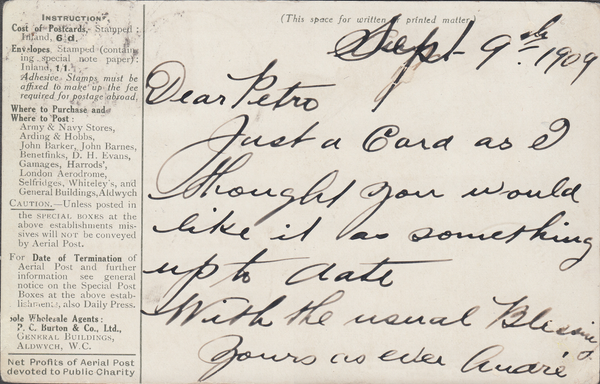 INSTRUCTIONS
Cost of Postcards, Stamped:
Inland, 6d.
Envelopes, Stamped (contain-
ing special note paper):
Inland, 1/1.
Adhesive Stamps must be
affixed to make up the fee
required for postage abroad.
Where to Purchase and
Where to Post:
Army & Navy Stores,
Arding & Hobbs,
John Barker, John Barnes,
Benetfinks, D. H. Evans,
Gamages, Harrods',
London Aerodrome,
Selfridges, Whiteley's, and
General Buildings, Aldwych
CAUTION.—Unless posted in
the SPECIAL BOXES at the
above establishments mis-
sives will NOT be conveyed
by Aerial Post.
For Date of Termination of
Aerial Post and further
information see general
notice on the Special Post
Boxes at the above estab-
lishments, also Daily Press.
Sole Wholesale Agents:
P. C. Burton & Co., Ltd.,
GENERAL BUILDINGS,
ALDWYCH, W.C.
Net Profits of Aerial Post
devoted to Public Charity
(This space for written or printed matter)
Sept 9th 1909
Dear Petro
Just a Card as I
thought you would
like it as something
up to date
With the usual Blessing
Yours as ever André